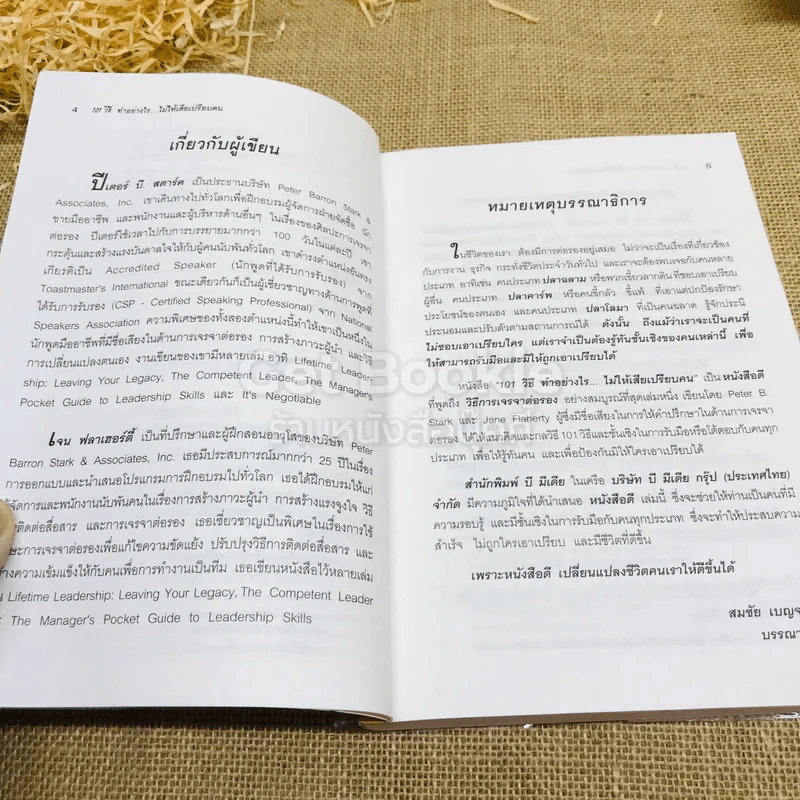 4 101 วิธี ทำอย่างไร... ไม่ให้เสียเปรียบคน
เกี่ยวกับผู้เขียน
ปีเตอร์ บี. สตาร์ค เป็นประธานบริษัท Peter Barron Stark &
Associates, Inc. เขาเดินทางไปทั่วโลกเพื่อฝึกอบรมผู้จัดการฝ่ายจัดซื้อ นัก
ขายมืออาชีพ และพนักงานและผู้บริหารด้านอื่นๆ ในเรื่องของศิลปะการเจรจา
ต่อรอง ปีเตอร์ใช้เวลาไปกับการบรรยายมากกว่า 100 วันในแต่ละปี เขา
กระตุ้นและสร้างแรงบันดาลใจให้กับผู้คนนับพันทั่วโลก เขาดำรงตำแหน่งอันทรง
เกียรติเป็น Accredited Speaker (นักพูดที่ได้รับการรับรอง) จาก
Toastmaster's International ขณะเดียวกันก็เป็นผู้เชี่ยวชาญทางด้านการพูดที่
ได้รับการรับรอง (CSP - Certified Speaking Professional) จาก National
Speakers Association ความพิเศษของทั้งสองตำแหน่งนี้ทำให้เขาเป็นหนึ่งใน
นักพูดมืออาชีพที่มีชื่อเสียงในด้านการเจรจาต่อรอง การสร้างภาวะผู้นำ และวิธี
การเปลี่ยนแปลงตนเอง งานเขียนของเขามีหลายเล่ม อาทิ Lifetime Leader-
ship: Leaving Your Legacy, The Competent Leader, The Manager's
Pocket Guide to Leadership Skills และ It's Negotiable
เจน ฟลาเฮอร์ตี้ เป็นที่ปรึกษาและผู้ฝึกสอนอาวุโสของบริษัท Peter
Barron Stark & Associates, Inc. เธอมีประสบการณ์มากกว่า 25 ปีในเรื่อง
การออกแบบและนำเสนอโปรแกรมการฝึกอบรมไปทั่วโลก เธอได้ฝึกอบรมให้แก่
ผู้จัดการและพนักงานนับพันคนในเรื่องการสร้างภาวะผู้นำ การสร้างแรงจูงใจ วิธี
ติดต่อสื่อสาร และการเจรจาต่อรอง เธอเชี่ยวชาญเป็นพิเศษในเรื่องการใช้
การเจรจาต่อรองเพื่อแก้ไขความขัดแย้ง ปรับปรุงวิธีการติดต่อสื่อสาร และ
ความเข้มแข็งให้กับคนเพื่อการทำงานเป็นทีม เธอเขียนหนังสือไว้หลายเล่ม
Lifetime Leadership: Leaving Your Legacy, The Competent Leader
The Manager's Pocket Guide to Leadership Skills
5
หมายเหตุบรรณาธิการ
ในชีวิตของเรา ต้องมีการต่อรองอยู่เสมอ ไม่ว่าจะเป็นเรื่องที่เกี่ยวข้อง
กับการงาน ธุรกิจ กระทั่งชีวิตประจำวันทั่วไป และเราจะต้องพบเจอกับคนหลาย
ประเภท อาทิเช่น คนประเภท ปลาฉลาม หรือพวกเขี้ยวลากดิน ที่ชอบเอาเปรียบ
ผู้อื่น คนประเภท ปลาคาร์พ หรือคนขี้กลัว ขี้แพ้ ที่เอาแต่ปกป้องรักษา
ประโยชน์ของตนเอง และคนประเภท ปลาโลมา ที่เป็นคนฉลาด รู้จักประนี
ประนอมและปรับตัวตามสถานการณ์ได้ ดังนั้น ถึงแม้ว่าเราจะเป็นคนที่
ไม่ชอบเอาเปรียบใคร แต่เราจำเป็นต้องรู้ทันชั้นเชิงของคนเหล่านี้ เพื่อ
ให้สามารถรับมือและมิให้ถูกเอาเปรียบได้
หนังสือ "101 วิธี ทำอย่างไร... ไม่ให้เสียเปรียบคน" เป็น หนังสือดี
ที่พูดถึง วิธีการเจรจาต่อรอง อย่างสมบูรณ์ที่สุดเล่มหนึ่ง เขียนโดย Peter B.
Stark และ Jane Flaherty ผู้ซึ่งมีชื่อเสียงในการให้คำปรึกษาในด้านการเจรจา
ต่อรอง ได้ให้แนวคิดและกลวิธี 101 วิธีและชั้นเชิงในการรับมือหรือโต้ตอบกับคนทุก
ประเภท เพื่อให้รู้ทันคน และเพื่อป้องกันมิให้ใครเอาเปรียบได้
สำนักพิมพ์ บี มีเดีย ในเครือ บริษัท บี มีเดีย กรุ๊ป (ประเทศไทย)
จำกัด มีความภูมิใจที่ได้นำเสนอ หนังสือดี เล่มนี้ ซึ่งจะช่วยให้ท่านเป็นคนที่มี
ความรอบรู้ และมีชั้นเชิงในการรับมือกับคนทุกประเภท ซึ่งจะทำให้ประสบความ
สำเร็จ ไม่ถูกใครเอาเปรียบ และมีชีวิตที่ดีขึ้น
เพราะหนังสือดี เปลี่ยนแปลงชีวิตคนเราให้ดีขึ้นได้
สมชัย
Get Bookie
ร้านหนังสือมือสอง